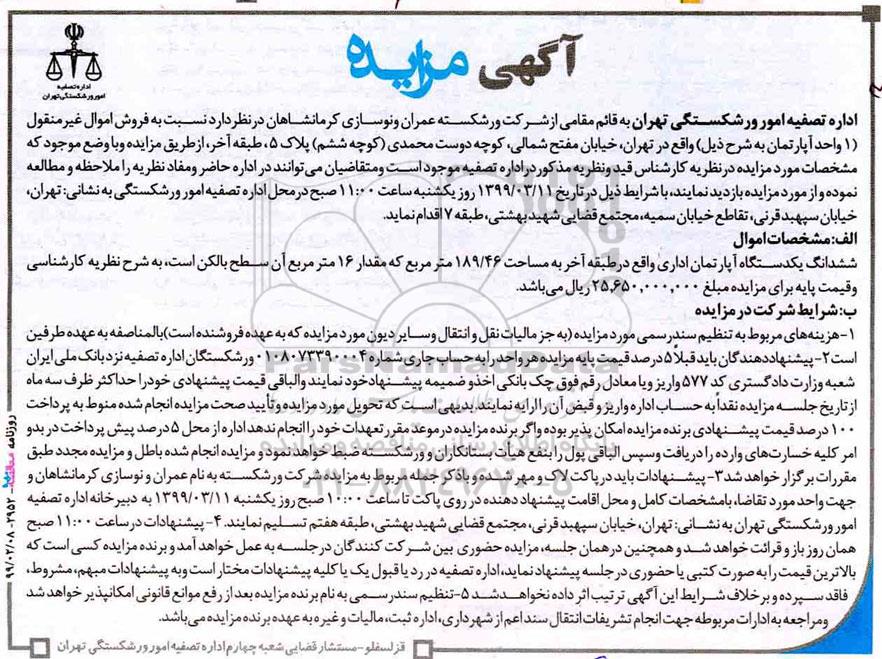 آگهی مزایده
اداره تصفیه
امور ورشکستگی تهران
اداره تصفیه امور ورشکستگی تهران به قائم مقامی از شرکت ورشکسته عمران ونوسازی کرمانشاهان در نظر دارد نسبت به فروش اموال غیر منقول
(۱ واحد آپارتمان به شرح ذیل) واقع در تهران، خیابان مفتح شمالی، کوچه دوست محمدی (کوچه ششم) پلاک ۵، طبقه آخر، از طریق مزایده و با وضع موجود که
مشخصات مورد مزایده در نظریه کارشناس قید و نظریه مذکور در اداره تصفیه موجود است و متقاضیان می‌توانند در اداره حاضر ومفاد نظریه را ملاحظه و مطالعه
نموده و از مورد مزایده بازدید نمایند، با شرایط ذیل در تاریخ ۱۳۹۹/۰۳/۱۱ روز یکشنبه ساعت ۱۱:۰۰ صبح در محل اداره تصفیه امور ورشکستگی به نشانی: تهران،
خیابان سپهبد قرنی، تقاطع خیابان سمیه، مجتمع قضایی شهید بهشتی، طبقه ۷ اقدام نماید.
الف: مشخصات اموال
ششدانگ یکدستگاه آپارتمان اداری واقع در طبقه آخر به مساحت ۱۸۹/۴۶ متر مربع که مقدار ۱۶ متر مربع آن سطح بالکن است، به شرح نظریه کارشناسی
وقیمت پایه برای مزایده مبلغ ۲۵,۶۵۰,۰۰۰,۰۰۰ ریال می‌باشد.
ب: شرایط شرکت در مزایده
۱-هزینه‌های مربوط به تنظیم سند رسمی مورد مزایده (به جز مالیات نقل و انتقال وسایر دیون مورد مزایده که به عهده فروشنده است) بالمناصفه به عهده طرفین
است ۲- پیشنهاددهندگان باید قبلاً ۵ درصد قیمت پایه مزایده هر واحد را به حساب جاری شماره ۰۱۰۸۰۷۳۳۹۰۰۰۴ ورشکستگان اداره تصفیه نزد بانک ملی ایران
شعبه وزارت دادگستری کد ۵۷۷ واریز و یا معادل رقم فوق چک بانکی اخذ و ضمیمه پیشنهاد خود نمایند والباقی قیمت پیشنهادی خود را حداکثر ظرف سه ماه
از تاریخ جلسه مزایده نقداً به حساب اداره واریز و قبض آن را ارایه نمایند. بدیهی است که تحویل مورد مزایده و تأیید صحت مزایده انجام شده منوط به پرداخت
۱۰۰ درصد قیمت پیشنهادی برنده مزایده امکان پذیر بوده و اگر برنده مزایده در موعد مقرر تعهدات خود را انجام ندهد اداره از محل ۵ درصد پیش پرداخت در بدو
امر کلیه خسارت‌های وارده را دریافت و سپس الباقی پول را بنفع هیأت بستانکاران و ورشکسته ضبط خواهد نمود و مزایده انجام شده باطل و مزایده مجدد طبق
مقررات برگزار خواهد شد ۳- پیشنهادات باید در پاکت لاک و مهر شده و با ذکر جمله مربوط به مزایده شرکت ورشکسته به نام عمران و نوسازی کرمانشاهان و
جهت واحد مورد تقاضا، با مشخصات کامل و محل اقامت پیشنهاد دهنده در روی پاکت تا ساعت ۱۰:۰۰ صبح روز یکشنبه ۱۳۹۹/۰۳/۱۱ به دبیرخانه اداره تصفیه
امور ورشکستگی تهران به نشانی: تهران، خیابان سپهبد قرنی، مجتمع قضایی شهید بهشتی، طبقه هفتم تسلیم نمایند. ۴- پیشنهادات در ساعت ۱۱:۰۰ صبح
همان روز باز و قرائت خواهد شد و همچنین در همان جلسه، مزایده حضوری بین شرکت کنندگان در جلسه به عمل خواهد آمد و برنده مزایده کسی است که
بالاترین قیمت را به صورت کتبی یا حضوری در جلسه پیشنهاد نماید، اداره تصفیه در رد یا قبول یک یا کلیه پیشنهادات مختار است و به پیشنهادات مبهم، مشروط،
فاقد سپرده و برخلاف شرایط این آگهی ترتیب اثر داده نخواهد شد ۵-تنظیم سند رسمی به نام برنده مزایده بعد از رفع موانع قانونی امکانپذیر خواهد شد
و مراجعه به ادارات مربوطه جهت انجام تشریفات انتقال سند اعم از شهرداری، اداره ثبت، مالیات و غیره به عهده برنده مزایده می‌باشد.
قزلسفلو-مستشار قضایی شعبه چهارم اداره تصفیه امور ورشکستگی تهران
روزنامه
۹۹/۰۲/۰۸-۰۲۹۵۲
ParsNamadData
پایگاه اطلاع رسانی مناقصه و مزایده
۰۲۱-۸۸۳۴۹۶۷۰-۵